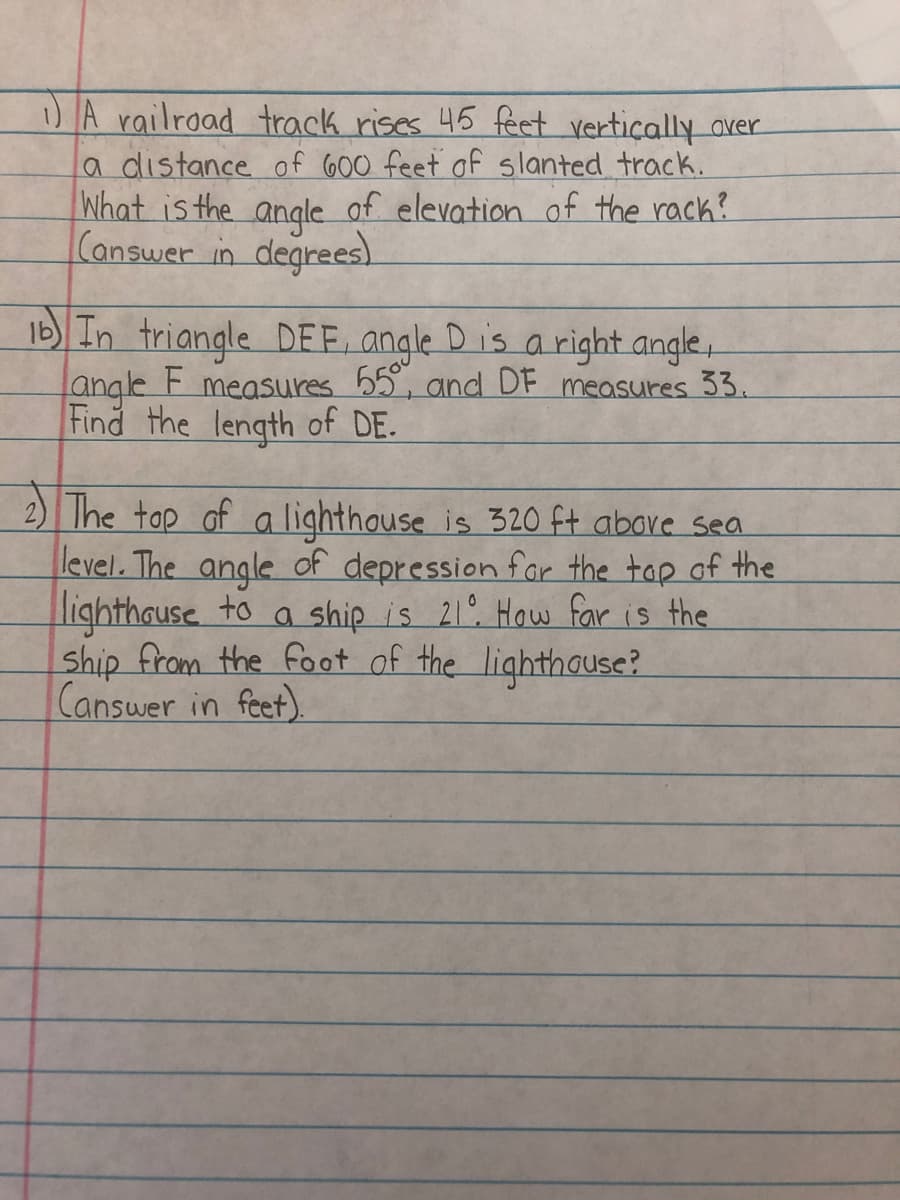 1) A railroad track rises 45 feet vertically over
a distance of 600 feet of slanted track.
What is the angle of elevation of the rack?
(answer in degrees)
1b) In triangle DEF, angle D is a right angle,
angle F measures 55°, and DF measures 33.
Find the length of DE.
2) The top of a lighthouse is 320 ft above sea
level. The angle of depression for the top of the
lighthouse to a ship is 21°. How far is the
ship from the foot of the lighthouse?
(answer in feet).